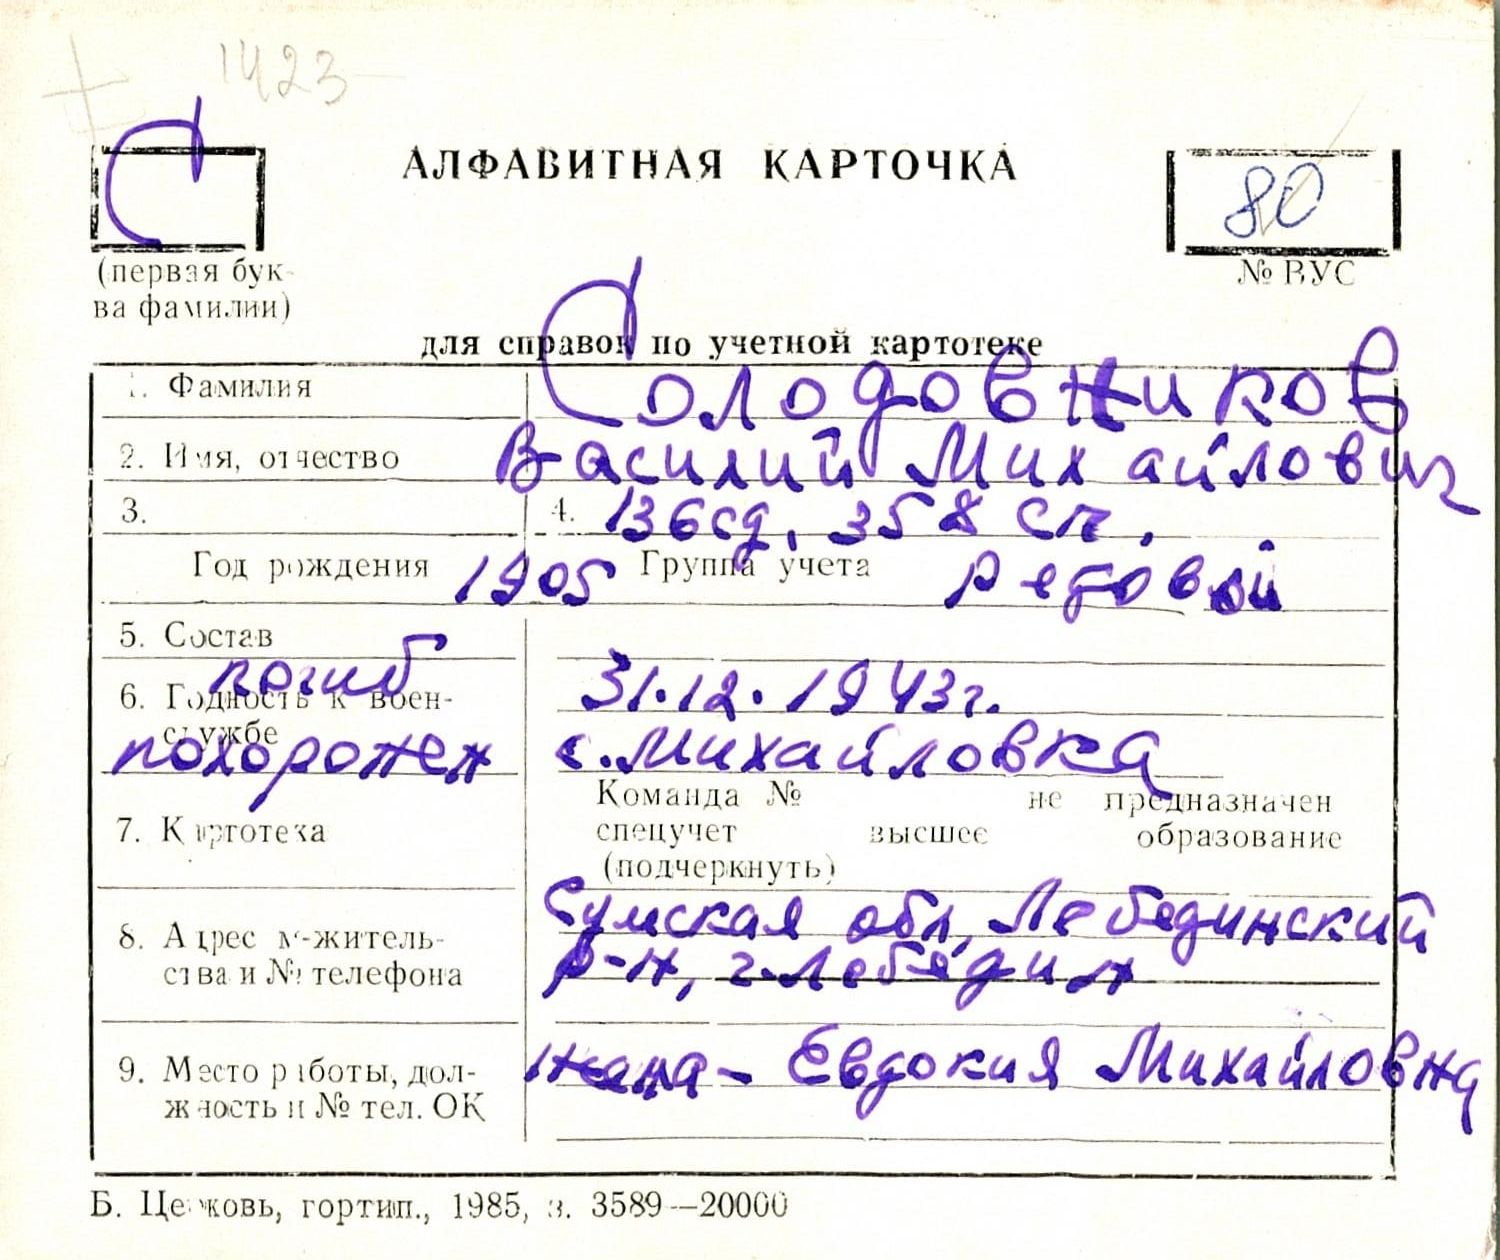 1423
С
АЛФАВИТНАЯ КАРТОЧКА
80
(первая бук-
ва фамилии)
№ ВУС
для справок по учетной картотеке
1. Фамилия Солодовников
2. Имя, отчество Василий Михайлович
3. 4. 136сд, 358 сп.
Год рождения 1905 Группа учета Рядовой
5. Состав
погиб 31.12.1943г.
6. Годность к воен-
службе
похоронен с. Михайловка
Команда № не предназначен
7. Картотека спецучет высшее образование
(подчеркнуть)
Сумская обл, Лебединский
8. Адрес м-житель-
р-н, г. Лебедин
ства и № телефона
9. Место работы, дол- жена - Евдокия Михайловна
жность и № тел. ОК
Б. Церковь, гортип., 1985, з. 3589—20000